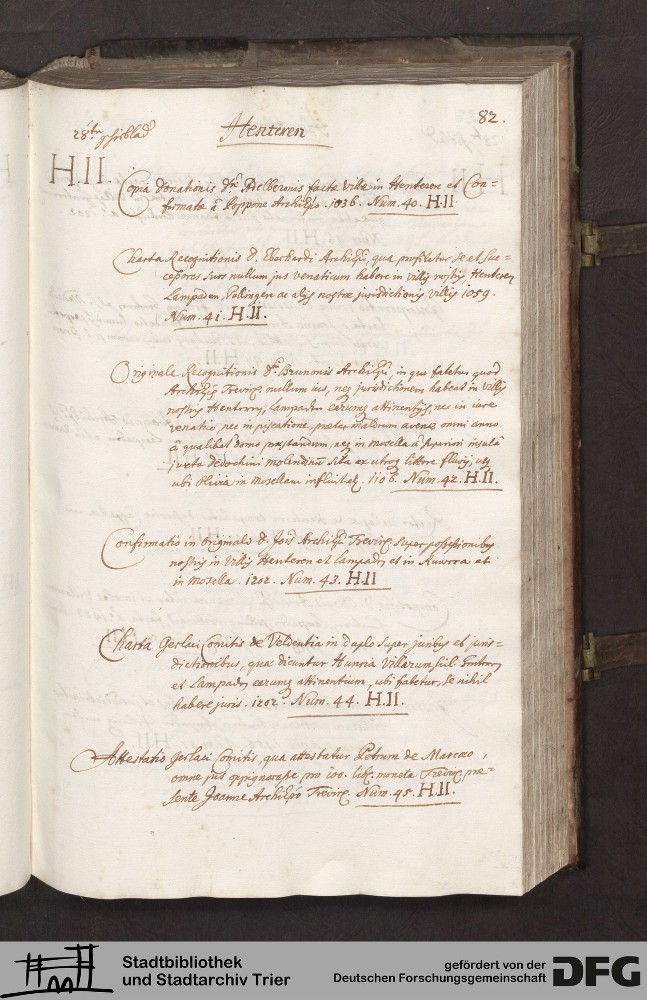 82.
28ᵗᵉ schublad
Henteren
H.II.
Copia donationis dⁿⁱ Adelberonis factæ villæ in Henteren et Con=
firmatæ à Poppone Archiēpo. 1036. Num. 40. H.II.
Charta Recognitionis d. Eberhardi Archiēpi, qua profitetur se et suc=
cessores suos nullum jus venaticum habere in villis nostris, Henteren
Lampaden, Pellingen ac alijs nostræ jurisdictionis villis 1059.
Num. 41. H.II.
Originale Recognitionis dⁿⁱ Brunonis Archiēpi, in quo fatetur quod
Archiēpus Trevir. nullum ius, neq jurisdictionem habeat in villis
nostris Henteren, Lampaden earumq attinentijs, nec in iure
venatio, nec in piscatione, præter maldrum avenæ omni anno
à qualibet domo præstandum, neq in mosella à superiori insula
juxta molendinū sita ex utroq littore fluvij, usq
ubi Olivia in mosellam influit etc. 1106. Num. 42. H.II.
Confirmatio in Originali d. Jois Archiēpi Trevir. super possessionibus
nostris in villis Henteren et Lampaden, et in Ruwora et
in mosella. 1202. Num. 43. H.II
Charta Gerlaci Comitis de Veldentia in duplo super juribus et juris=
dictionibus, quæ dicuntur Hunria villarum scil. Entren
et Lampaden earumq attinentium, ubi fatetur, se nihil
habere juris. 1202. Num. 44. H.II.
Attestatio Gerlaci Comitis, qua attestatur Petrum de Marceto,
omne jus oppignorasse pro 100. lib. moneta Trevir. præ=
sente Joanne Archiēpo Trevir. Num. 45. H.II.
Stadtbibliothek
und Stadtarchiv Trier
gefördert von der
Deutschen Forschungsgemeinschaft
DFG